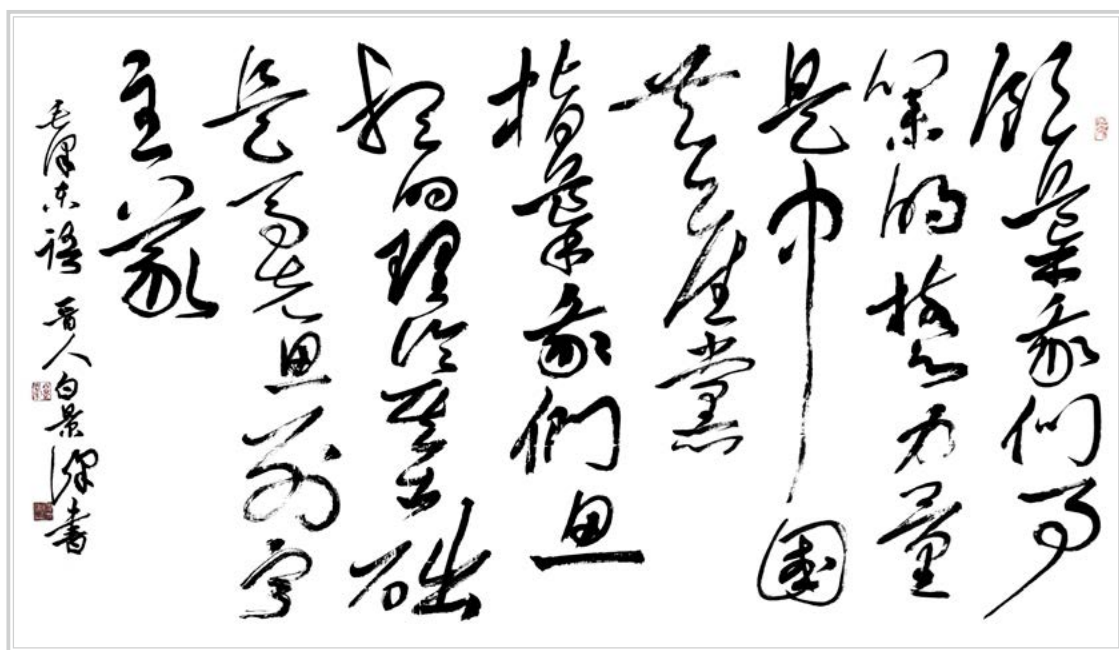 领导我们事
業的核心力量
是中國
共产黨
指导我們思
想的理论基础
是马克思列宁
主義
毛泽东语 晋人白景書